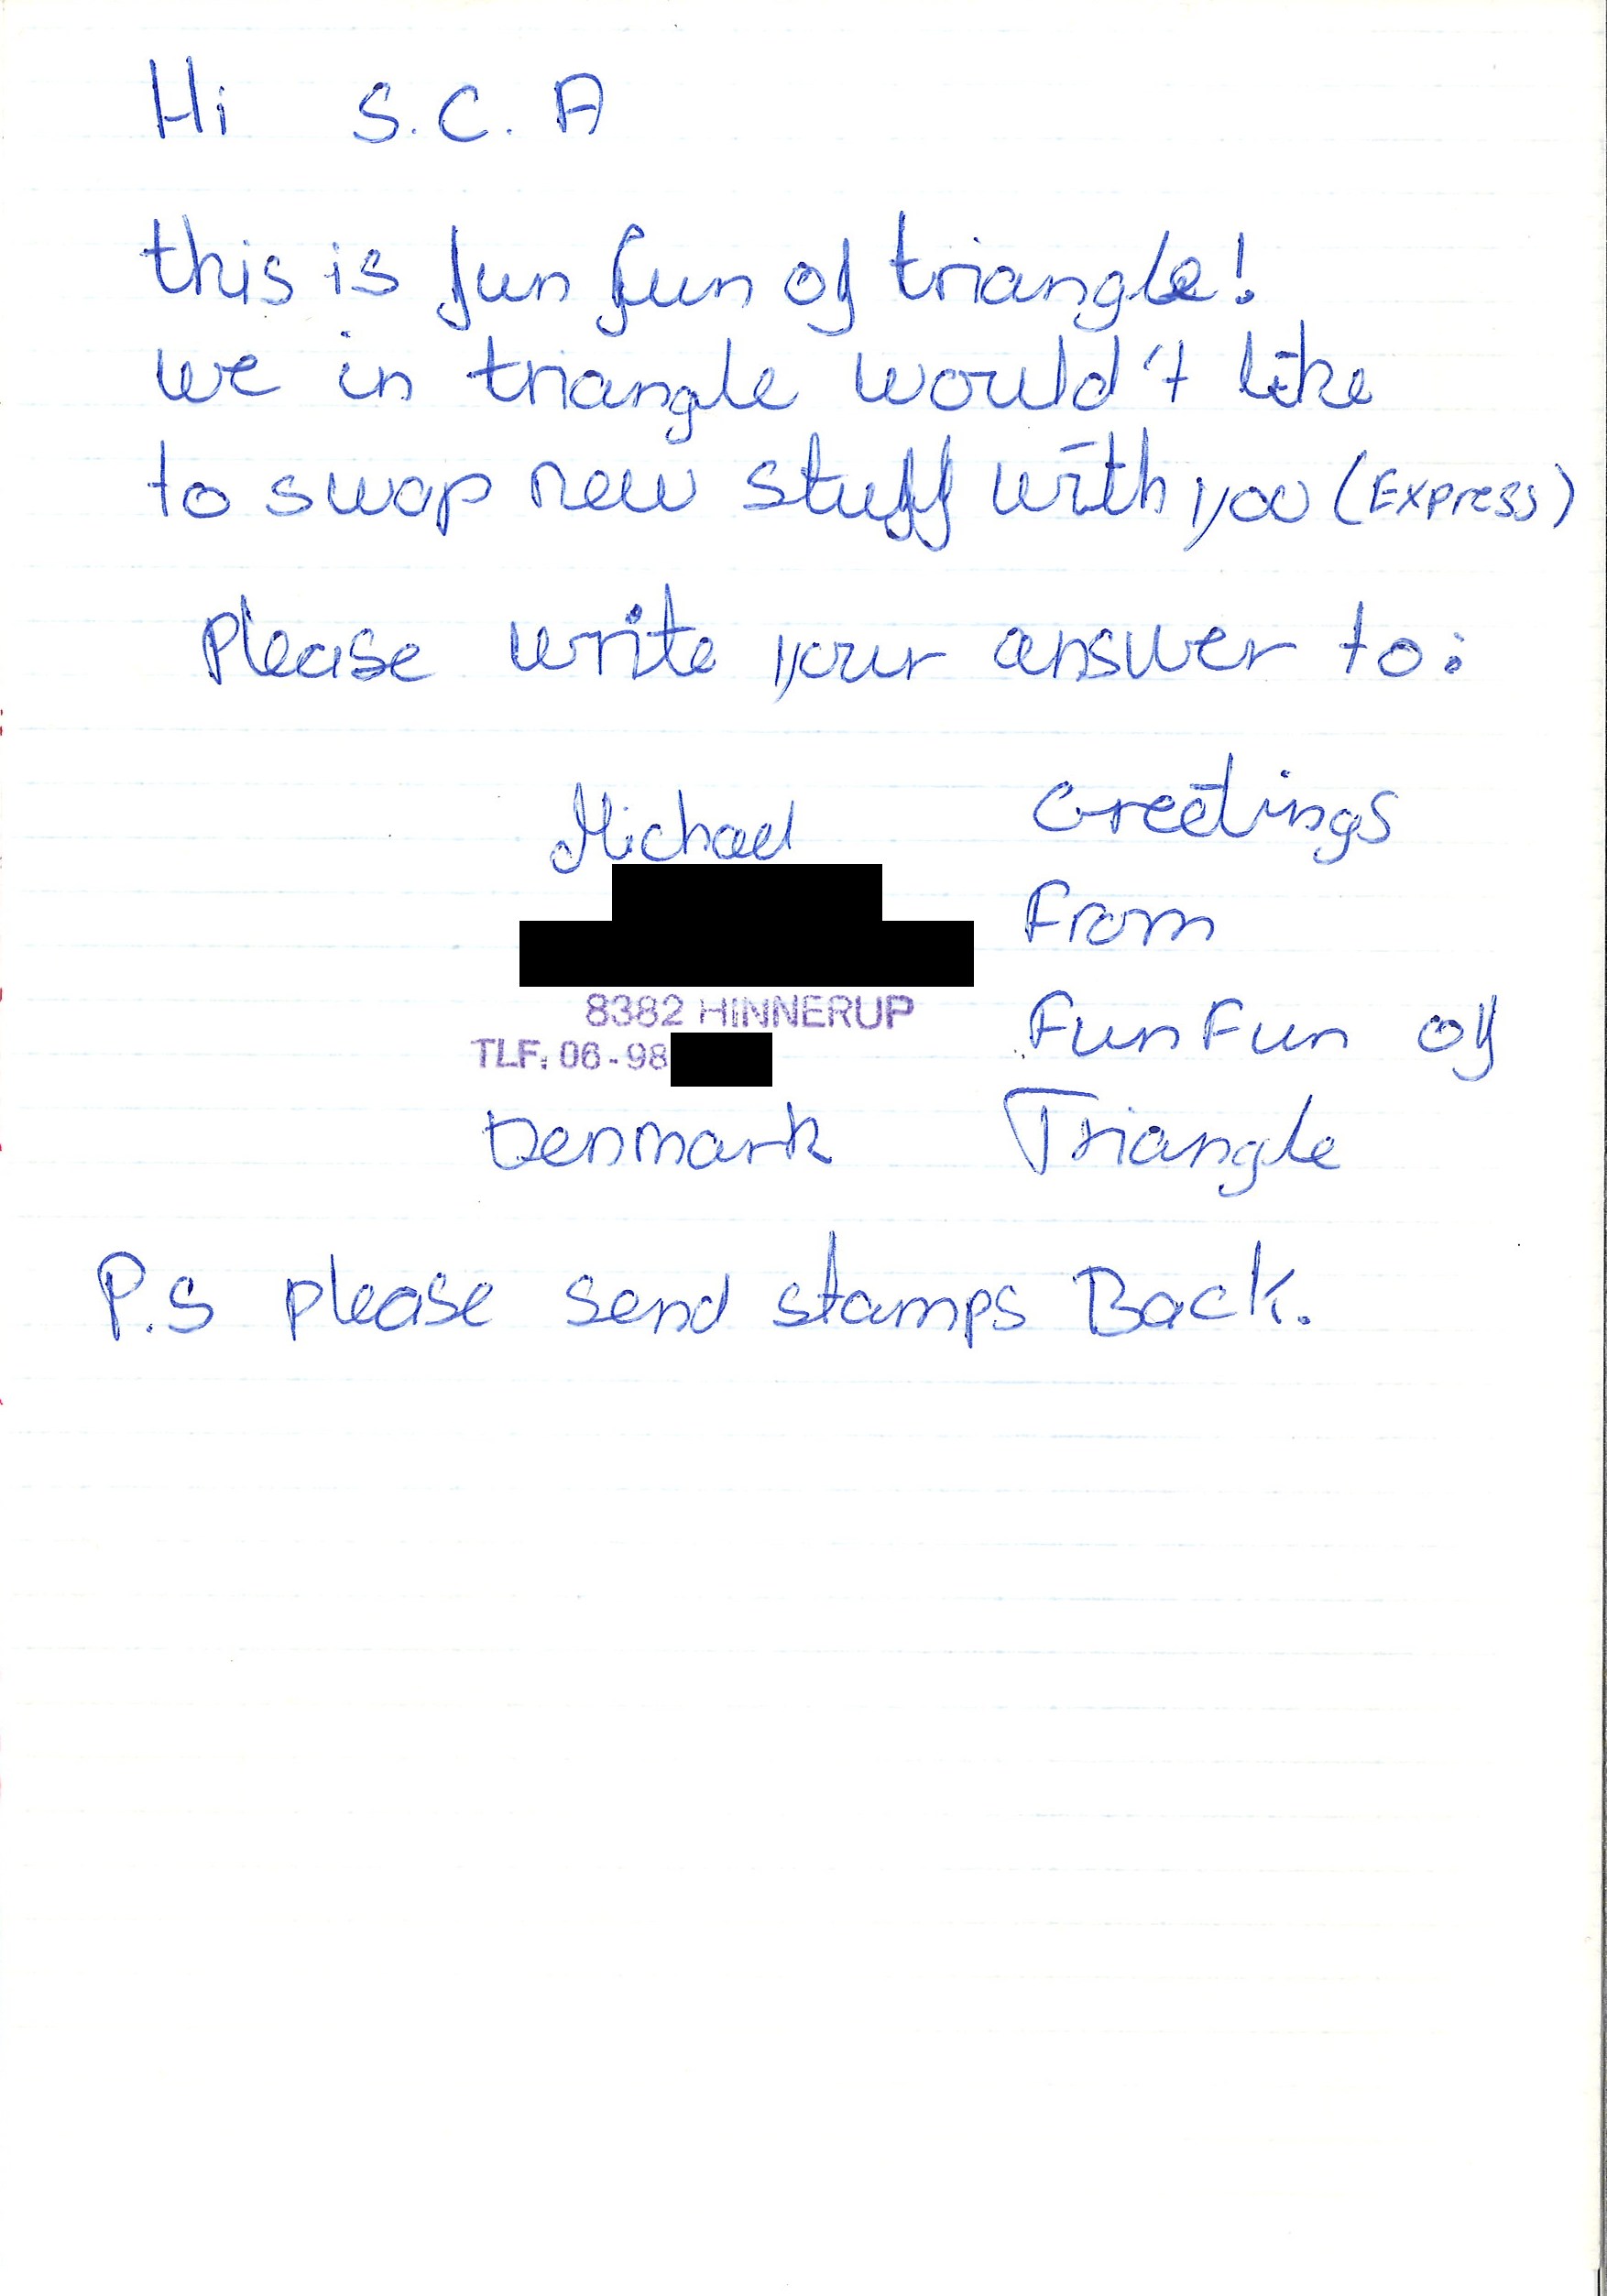 Hi S.C.A
this is fun fun of triangle!
we in triangle would't like
to swap new stuff with you (Express)
Please write your answer to:
Michael
8382 HINNERUP
TLF: 06-98
Denmark
Greetings
From
Fun Fun of
Triangle
P.S please send stamps Back.